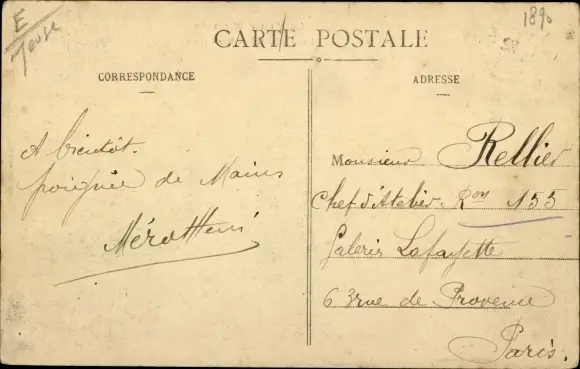 E
1890
CARTE POSTALE
CORRESPONDANCE
ADRESSE
A bientôt.
poignée de Mains
Monsieur Rellier
Chef d'Atelier. Ron 155
Galeries Lafayette
63 rue de Provence
Paris.